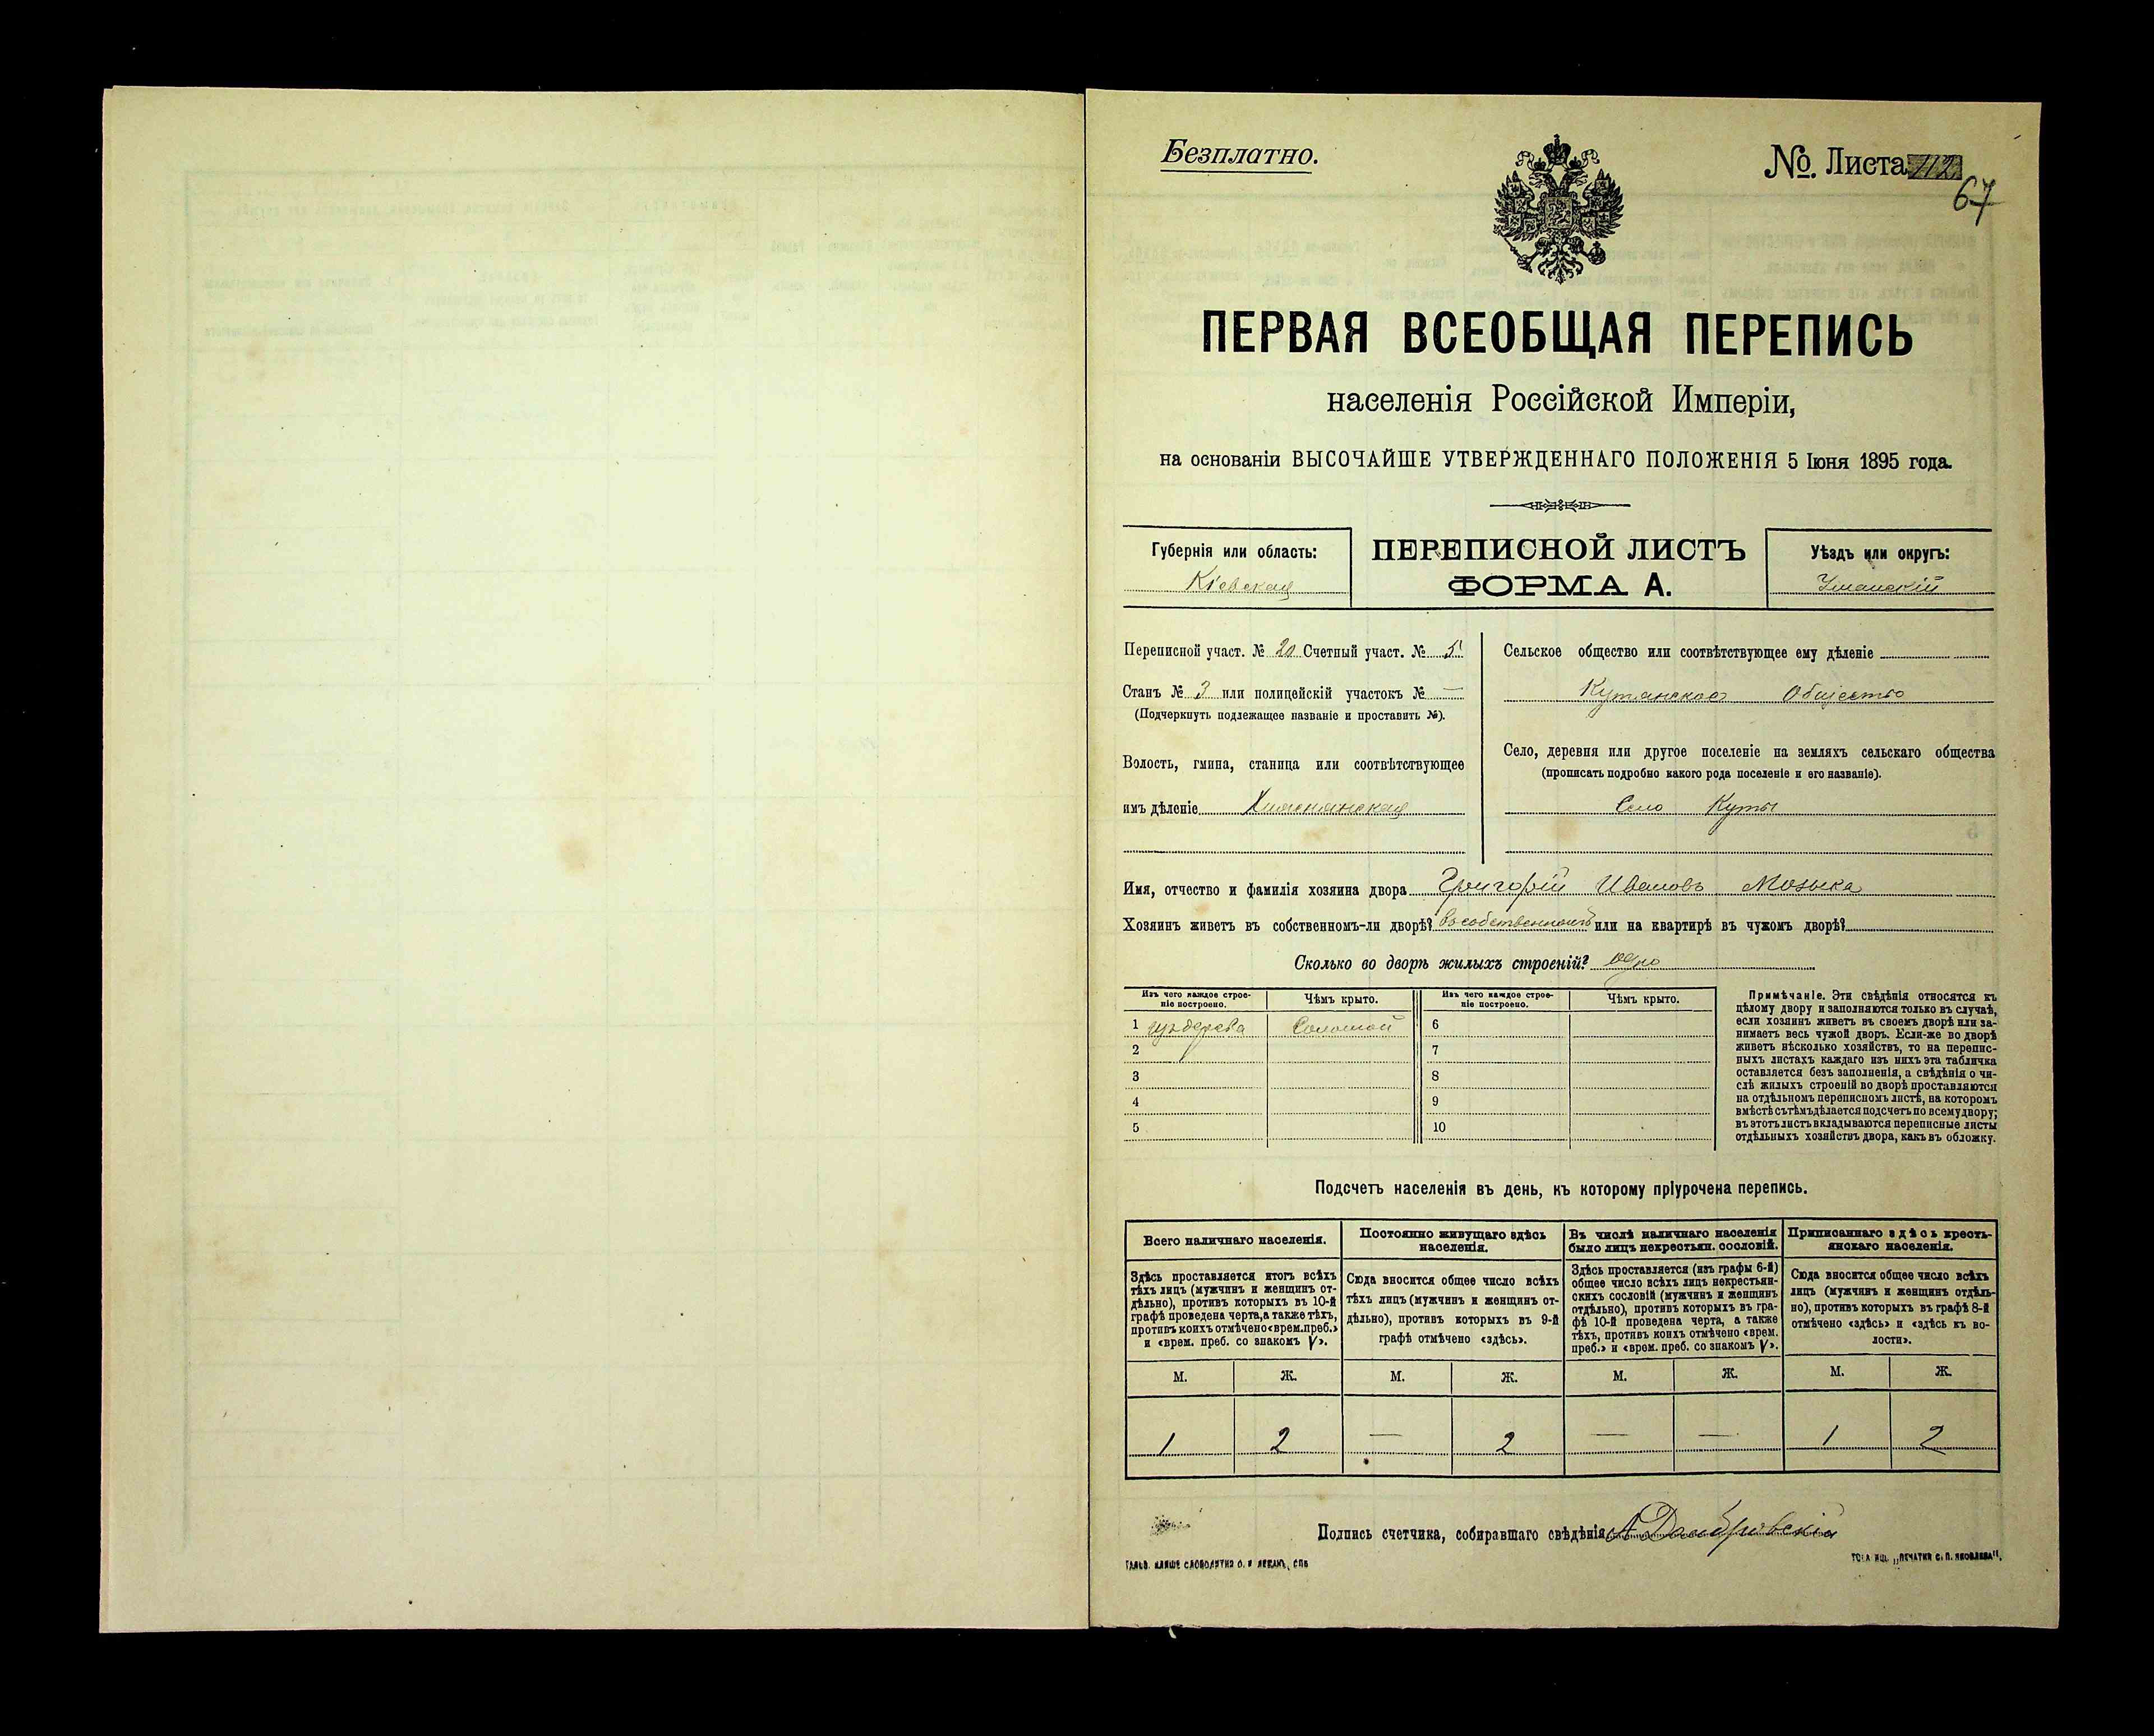 Безплатно.
№. Листа 112
67
ПЕРВАЯ ВСЕОБЩАЯ ПЕРЕПИСЬ
населенія Россійской Имперіи,
на основаніи ВЫСОЧАЙШЕ УТВЕРЖДЕННАГО ПОЛОЖЕНІЯ 5 Іюня 1895 года.
Губернія или область:
Кіевская
ПЕРЕПИСНОЙ ЛИСТЪ
ФОРМА А.
Уѣздъ или округъ:
Уманскій
Переписной участ. № 20 Счетный участ. № 5
Станъ № 3 или полицейскій участокъ № —
(Подчеркнуть подлежащее названіе и проставить №).
Волость, гмина, станица или соотвѣтствующее
имъ дѣленіе
Сельское общество или соотвѣтствующее ему дѣленіе
Кутянское Общество
Село, деревня или другое поселеніе на земляхъ сельскаго общества
(прописать подробно какого рода поселеніе и его названіе).
Село Куты
Имя, отчество и фамилія хозяина двора Григорій Ивановъ Мозыка
Хозяинъ живетъ въ собственномъ-ли дворѣ? въ собственномъ или на квартирѣ въ чужомъ дворѣ?
Сколько во дворѣ жилыхъ строеній? одно
Изъ чего каждое строе-
ніе построено.
Чѣмъ крыто.
Изъ чего каждое строе-
ніе построено.
Чѣмъ крыто.
1 изъ дерева Соломой 6
2 7
3 8
4 9
5 10
Примѣчаніе. Эти свѣдѣнія относятся къ
цѣлому двору и заполняются только въ случаѣ,
если хозяинъ живетъ въ своемъ дворѣ или за-
нимаетъ весь чужой дворъ. Если-же во дворѣ
живетъ нѣсколько хозяйствъ, то на перепис-
ныхъ листахъ каждаго изъ нихъ эта табличка
оставляется безъ заполненія, а свѣдѣнія о чи-
слѣ жилыхъ строеній во дворѣ проставляются
на отдѣльномъ переписномъ листѣ, на которомъ
вмѣстѣ съ тѣмъ дѣлается подсчетъ по всему двору;
въ этотъ листъ вкладываются переписные листы
отдѣльныхъ хозяйствъ двора, какъ въ обложку.
Подсчетъ населенія въ день, къ которому пріурочена перепись.
Всего наличнаго населенія.
Здѣсь проставляется итогъ всѣхъ
тѣхъ лицъ (мужчинъ и женщинъ от-
дѣльно), противъ которыхъ въ 10-й
графѣ проведена черта, а также тѣхъ,
противъ коихъ отмѣчено «врем. преб.»
и «врем. преб. со знакомъ V».
Постоянно живущаго здѣсь
населенія.
Сюда вносится общее число всѣхъ
тѣхъ лицъ (мужчинъ и женщинъ от-
дѣльно), противъ которыхъ въ 9-й
графѣ отмѣчено «здѣсь».
Въ числѣ наличнаго населенія
было лицъ некрестьян. сословій.
Здѣсь проставляется (изъ графы 6-й)
общее число всѣхъ лицъ некрестьян-
скихъ сословій (мужчинъ и женщинъ
отдѣльно), противъ которыхъ въ гра-
фѣ 10-й проведена черта, а также
тѣхъ, противъ коихъ отмѣчено «врем.
преб.» и «врем. преб. со знакомъ V».
Приписаннаго здѣсь кресть-
янскаго населенія.
Сюда вносится общее число всѣхъ
лицъ (мужчинъ и женщинъ отдѣль-
но), противъ которыхъ въ графѣ 8-й
отмѣчено «здѣсь» и «здѣсь къ во-
лости».
М. Ж. М. Ж. М. Ж. М. Ж.
1 2 — 2 — — 1 2
Подпись счетчика, собиравшаго свѣдѣнія А Домбровскій